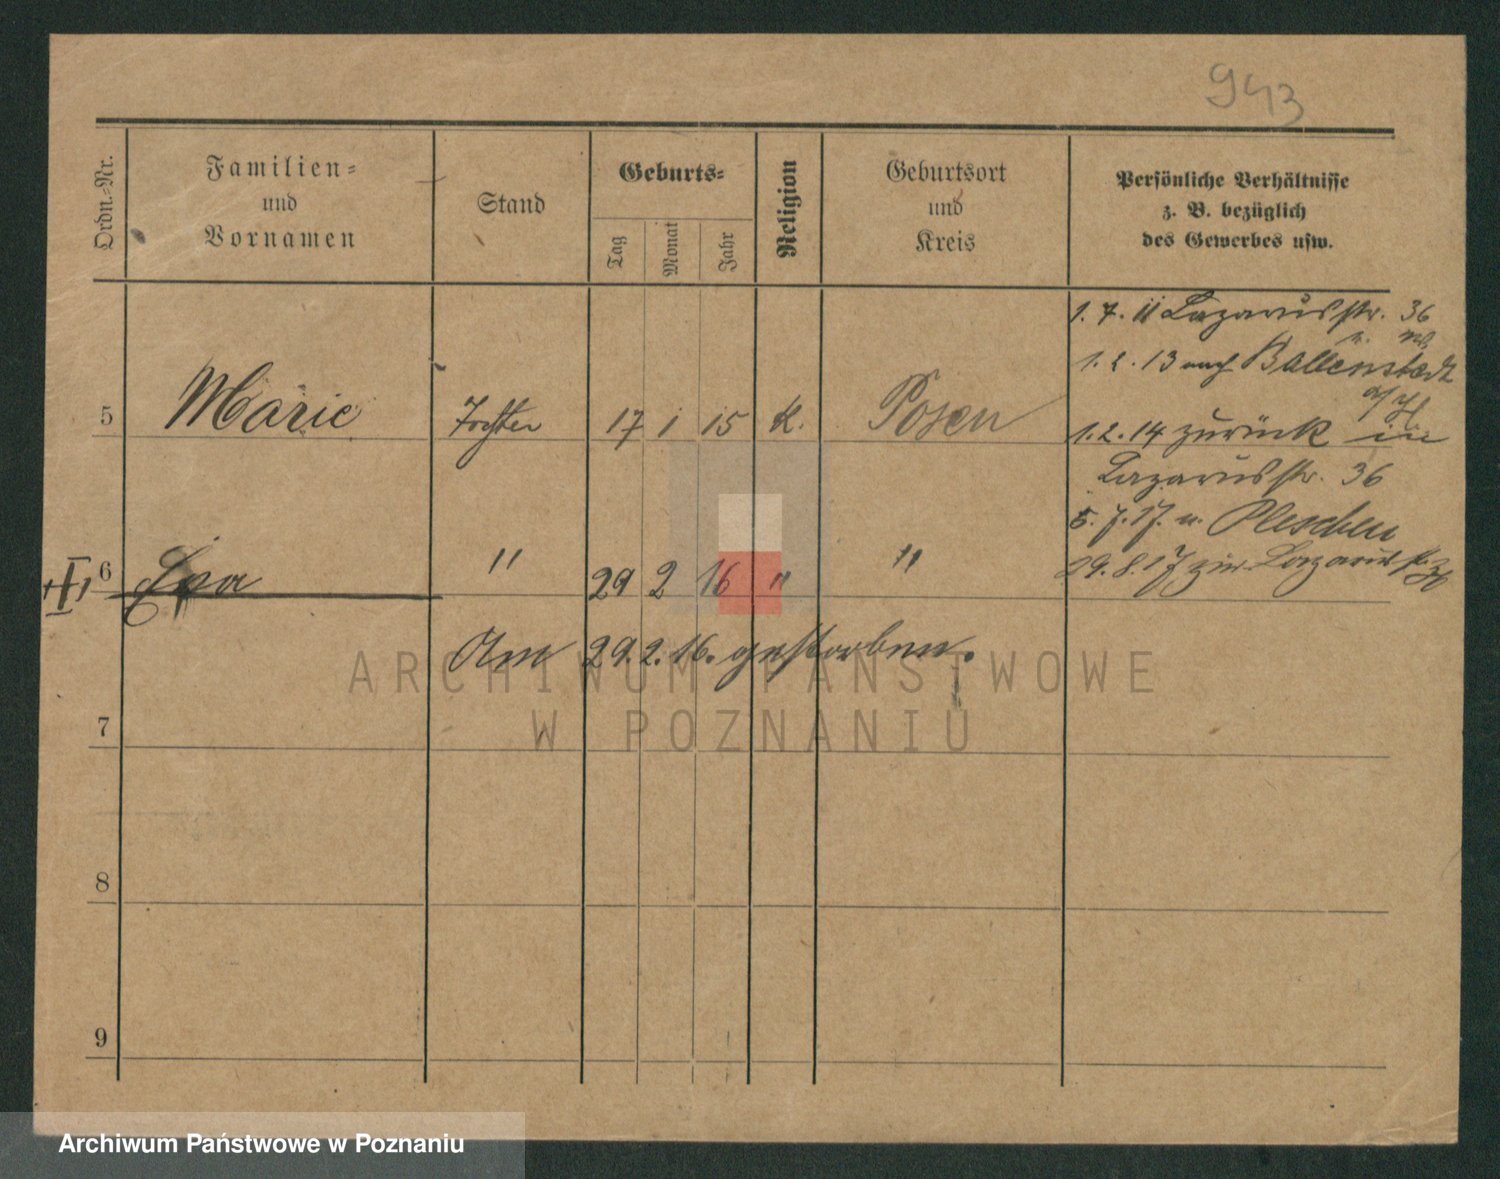 943
Ordn.-Nr.
Familien-
und
Vornamen
Stand
Geburts-
Tag
Monat
Jahr
Religion
Geburtsort
und
Kreis
Persönliche Verhältnisse
z. B. bezüglich
des Gewerbes usw.
1. 7. 11 Lazarusstr. 36
1. 2. 13 nach Ballenstedt
a/H
5 Marie Tochter 17 1 15 K. Posen
1. 2. 14 zurück in
Lazarusstr. 36
5. 7. 17. n. Pleschen
29. 8. 17 zur. Lazarusstr. 36
6 Eva " 29 2 16 " "
Am 29. 2. 16. gestorben.
ARCHIWUM PAŃSTWOWE
W POZNANIU
7
8
9
Archiwum Państwowe w Poznaniu